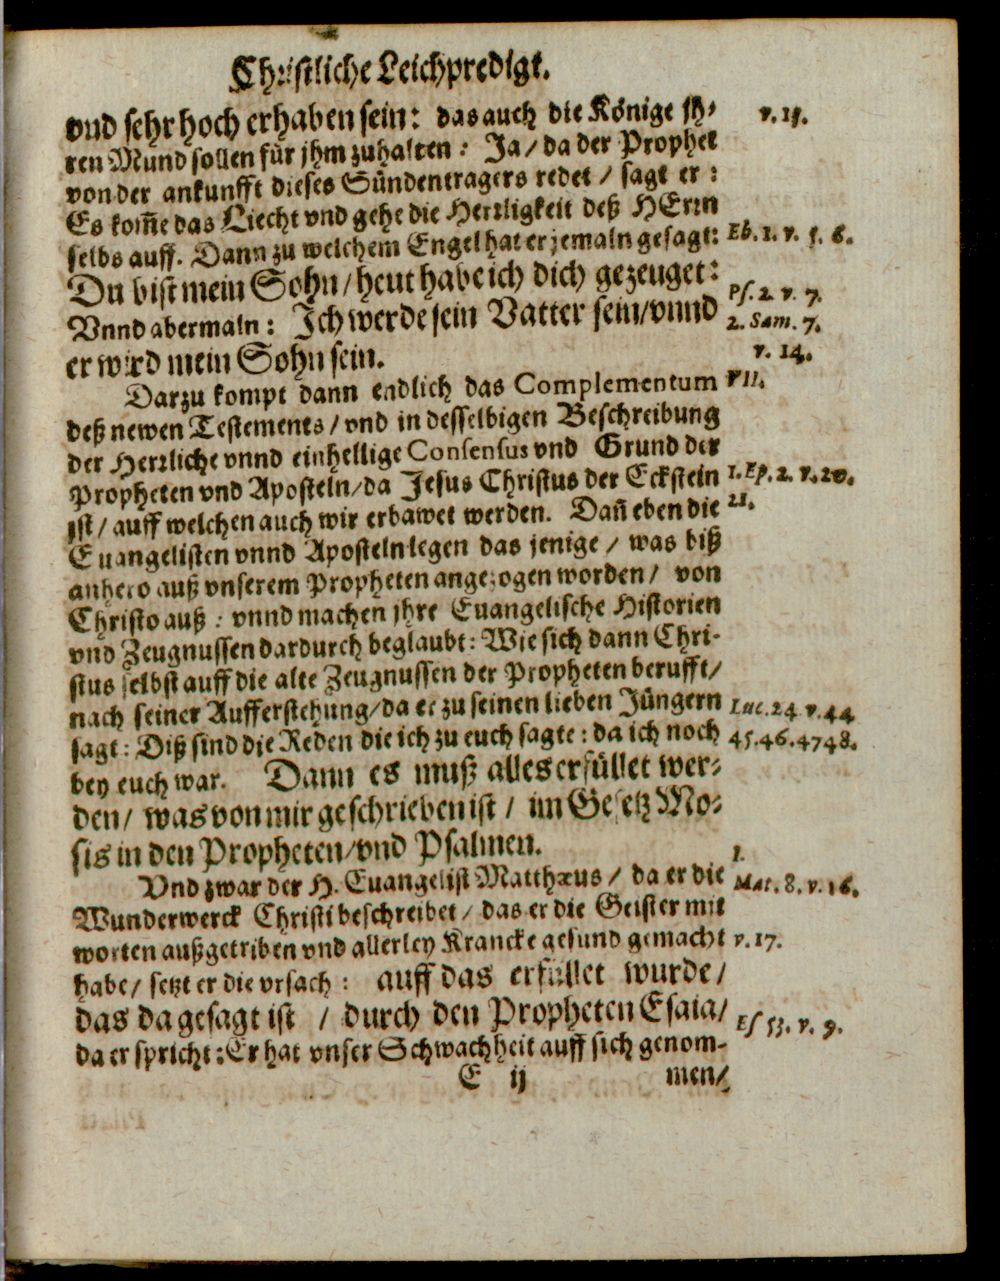 Christliche Leichpredigt.
vnd sehr hoch erhaben sein: das auch die Könige jh- v. 15.
ren Mund sollen für jhm zuhalten: Ja/ da der Prophet
von der ankunfft dieses Sündentragers redet / sagt er:
Es kom̃e das Liecht vnd gehe die Herrligkeit deß HErrn
selbs auff. Dann zu welchem Engel hat er jemaln gesagt: Eb. 1. v. 5. 6.
Du bist mein Sohn/ heut habe ich dich gezeuget: Ps. 2. v. 7.
Vnnd abermaln: Ich werde sein Vatter sein/ vnnd 2. Sam. 7.
er wird mein Sohn sein. v. 14.
Darzu kompt dann endlich das Complementum VII.
deß newen Testements / vnd in desselbigen Beschreibung
der Herrliche vnnd einhellige Consensus vnd Grund der
Propheten vnd Aposteln/ da Jesus Christus der Eckstein 1. Ep. 2. v. 20.
ist / auff welchen auch wir erbawet werden. Dañ eben die 21.
Euangelisten vnnd Aposteln legen das jenige / was biß
anhero auß vnserem Propheten angezogen worden / von
Christo auß: vnnd machen jhre Euangelische Historien
vnd Zeugnussen dardurch beglaubt: Wie sich dann Chri-
stus selbst auff die alte Zeugnussen der Propheten berufft/
nach seiner Aufferstehung/ da er zu seinen lieben Jüngern Luc. 24. v. 44
sagt: Diß sind die Reden die ich zu euch sagte: da ich noch 45. 46. 47 48.
bey euch war. Dann es muß alles erfüllet wer-
den/ was von mir geschrieben ist / im Gesetz Mo-
sis in den Propheten/ vnd Psalmen. 1.
Vnd zwar der H. Euangelist Matthæus / da er die Mat. 8. v. 16.
Wunderwerck Christi beschreibet / das er die Geister mit
worten außgetriben vnd allerley Krancke gesund gemacht v. 17.
habe/ setzt er die vrsach: auff das erfüllet wurde/
das da gesagt ist / durch den Propheten Esaia/ Es 53. v. 9.
da er spricht: Er hat vnser Schwachheit auff sich genom-
E ij men/